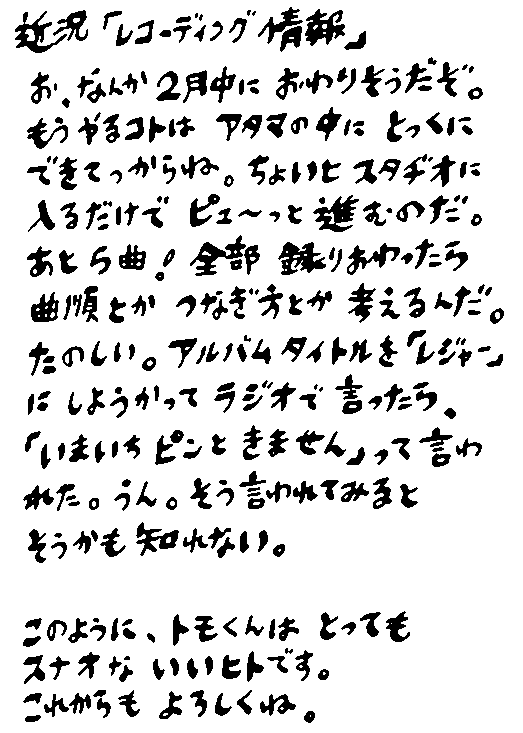 近況「レコーディング情報」
お、なんか2月中におわりそうだぞ。
もうやるコトは アタマの中に とっくに
できてっからね。ちょいと スタヂオに
入るだけで ピュ〜っと 進むのだ。
あと5曲！全部 録りおわったら
曲順とか つなぎ方とか 考えるんだ。
たのしい。アルバムタイトルを「レジャー」
にしようかって ラジオで 言ったら、
「いまいち ピンと きません」って 言わ
れた。うん。そう言われてみると
そうかも 知れない。
このように、トモくんは とっても
スナオな いいヒトです。
これからも よろしくね。